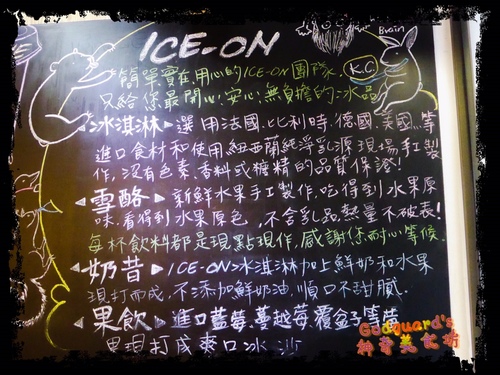 ICE-ON
Brain
K.C.
簡單實在.用心的ICE-ON團隊.
只給您最開心.安心.無負擔的冰品
◀冰淇淋▶選用法國.比利時.德國.美國..等
進口食材和使用紐西蘭純淨乳源現場手工製
作,沒有色素.香料或糖精的品質保證!
◀雪酪▶新鮮水果手工製作.吃得到水果原
味.看得到水果原色,不含乳品.熱量不破表!
每杯飲料都是現點現作.感謝您耐心等候.
◀奶昔▶ICE-ON冰淇淋加上鮮奶和水果
現打而成.不添加鮮奶油.順口不甜膩.
◀果飲▶進口藍莓.蔓越莓.覆盆子等莓
果現打成爽口冰沙
Godguard's
神奇美食術